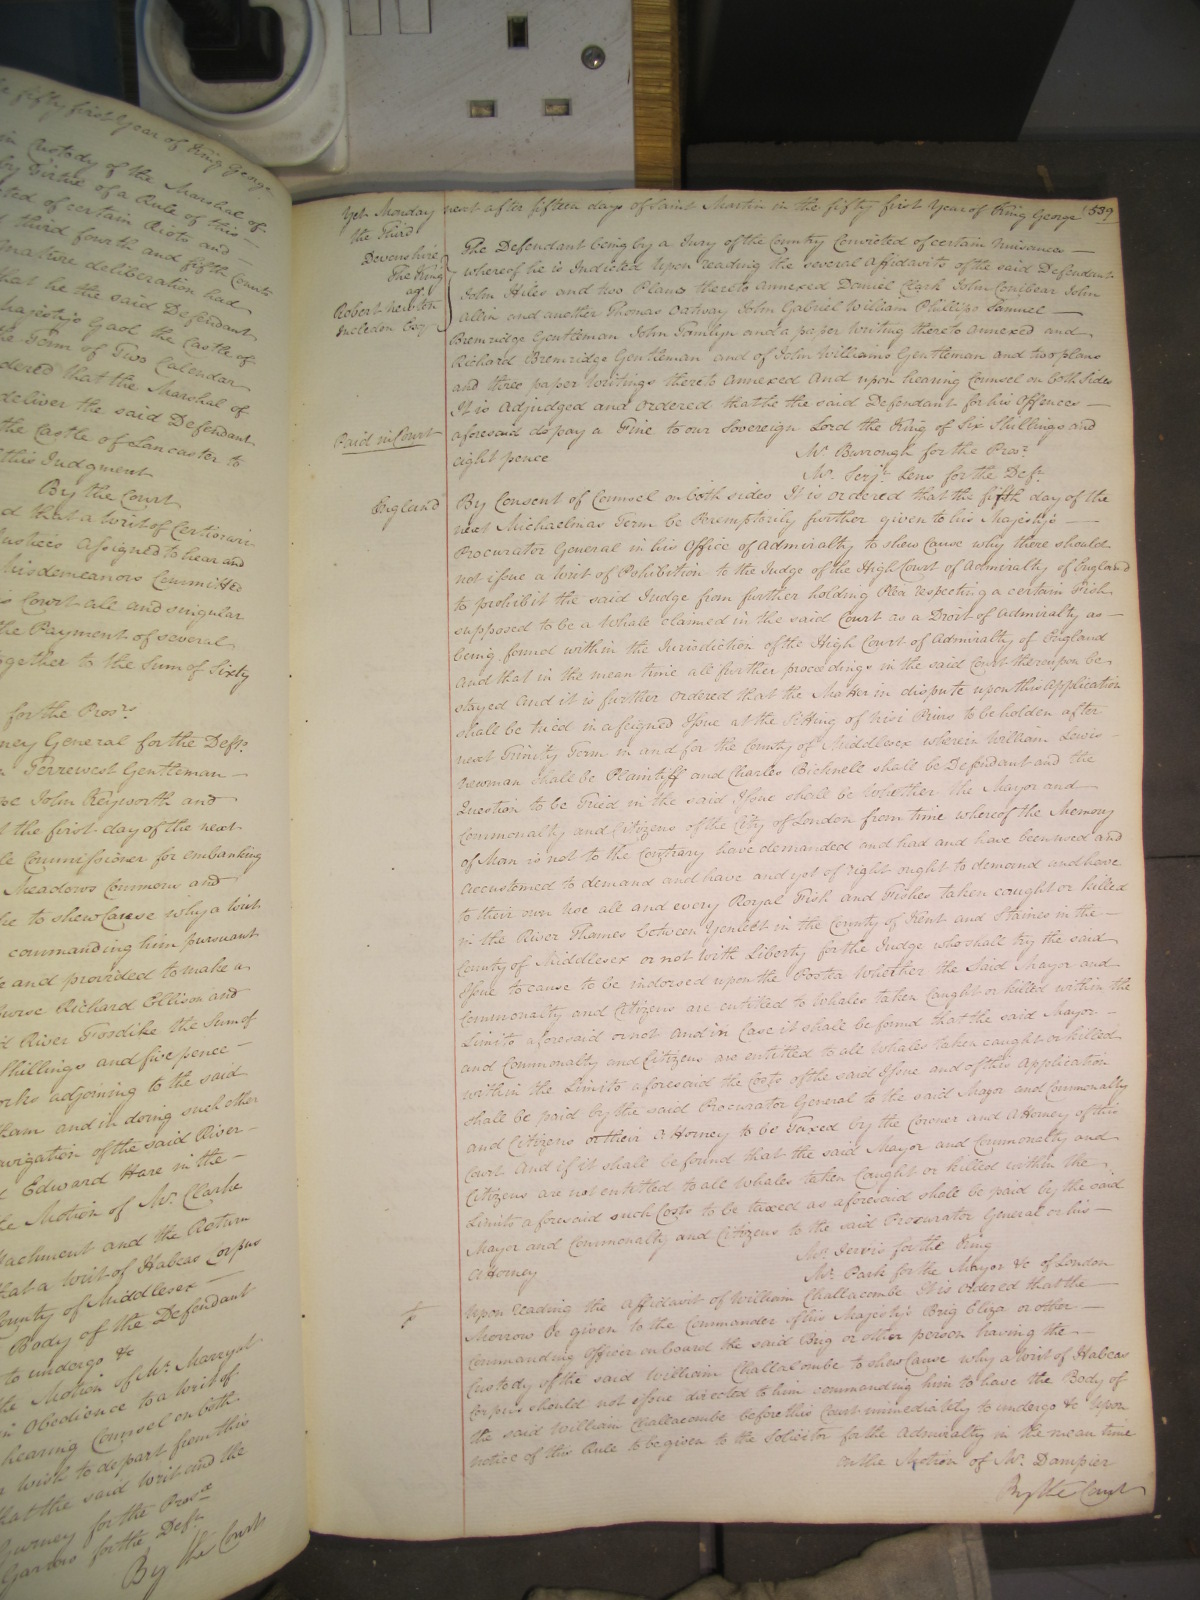 he fifty first Year of King George
in Custody of the Marshal of
by Virtue of a Rule of this
ted of certain Riots and
third fourth and fifth Counts
mature deliberation had
hat he the said Defendant
Majestys Gaol the Castle of
he Term of Two Calendar
dered that the Marshal of
deliver the said Defendant
the Castle of Lancaster to
this Judgment
By the Court
d that a Writ of Certiorari
Justices assigned to hear and
Misdemeanors Committed
s Court all and singular
the Payment of several
ogether to the Sum of Sixty
for the Prosr.
ney General for the Deft.
Gentleman
John Keyworth and
the first day of the next
le Commissioner for embanking
Meadows Commons and
he to shew Cause why a Writ
commanding him pursuant
e and provided to make a
Richard Ellison and
d River Fosdike the Sum of
Shillings and five pence
orks adjoining to the said
ham and in doing such other
avigation of the said River
d Edward Hare in the
he Motion of Mr. Clarke
tachment and the Return
that a Writ of Habeas Corpus
County of Middlesex
Body of the Defendant
to undergo &c
the Motion of Mr. Marryat
in Obedience to a Writ of
hearing Counsel on both
wish to depart from this
that the said Writ and the
Gurney for the Prosr.
Garrow for the Deft.
By the Court
Yet Monday next after fifteen days of Saint Martin in the fifty first Year of King George 539
the Third
Devonshire
The King
agt
Robert Newton
Incledon Esqr
The Defendant being by a Jury of the Country Convicted of certain Nuisances
whereof he is Indicted Upon reading the several Affidavits of the said Defendant
John Hiles and two Plans thereto annexed Daniel Clark John Conibear John
Allin and another Thomas Oatway John Gabriel William Phillips Samuel
Bremridge Gentleman John Tomlyn and a paper Writing thereto annexed and
Richard Bremridge Gentleman and of John Williams Gentleman and two plans
and three paper Writings thereto annexed And upon hearing Counsel on both Sides
It is Adjudged and Ordered that he the said Defendant for his Offences
Paid in Court
aforesaid do pay a Fine to our Sovereign Lord the King of Six Shillings and
eight pence
Mr. Burrough for the Prosr.
Mr. Serjt. Lens for the Deft.
England
By Consent of Counsel on both sides It is ordered that the fifth day of the
next Michaelmas Term be Peremptorily further given to his Majesty's
Procurator General in his Office of Admiralty to shew Cause why there should
not issue a Writ of Pohibition to the Judge of the High Court of Admiralty of England
to prohibit the said Judge from further holding Plea respecting a certain Fish
supposed to be a Whale claimed in the said Court as a Droit of Admiralty as
being found within the Jurisdiction of the High Court of Admiralty of England
And that in the mean time all further proceedings in the said Court thereupon be
stayed And it is further Ordered that the Matter in dispute upon this Application
shall be tried in a feigned Issue at the Sitting of Nisi Prius to be holden after
next Trinity Term in and for the County of Middlesex wherein William Lewis
Newman shall be Plaintiff and Charles Bicknell shall be Defendant and the
Question to be Tried in the said Issue shall be Whether the Mayor and
Commonalty and Citizens of the City of London from time whereof the Memory
of Man is not to the Contrary have demanded and had and have been used and
accustomed to demand and have and yet of right ought to demand and have
to their own Use all and every Royal Fish and Fishes taken caught or killed
in the River Thames between Yenlett in the County of Kent and Staines in the
County of Middlesex or not With Liberty for the Judge who shall try the said
Issue to cause to be indorsed upon the Postea Whether the said Mayor and
Commonalty and Citizens are entitled to Whales taken Caught or killed within the
Limits aforesaid or not And in Case it shall be found that the said Mayor
and Commonalty and Citizens are entitled to all Whales taken caught or killed
within the Limits aforesaid the Costs of the said Issue and of this Application
shall be paid by the said Procurator General to the said Mayor and Commonalty
and Citizens or their Attorney to be Taxed by the Coroner and Attorney of this
Court And if it shall be found that the said Mayor and Commonalty and
Citizens are not entitled to all Whales taken Caught or killed within the
Limits aforesaid such Costs to be taxed as aforesaid shall be paid by the said
Mayor and Commonalty and Citizens to the said Procurator General or his
Attorney
Mr. Jervis for the King
Mr. Park for the Mayor &c of London
Upon reading the Affidavit of William Challacombe It is Ordered that the
Morrow be given to the Commander of his Majesty's Brig Eliza or other
Commanding Officer on board the said Brig or other person having the
Custody of the said William Challacombe to shew Cause why a Writ of Habeas
Corpus should not issue directed to him commanding him to have the Body of
the said William Challacombe before this Court immediately to undergo &c Upon
notice of this Rule to be given to the Solicitor for the Admiralty in the mean time
On the Motion of Mr. Dampier
By the Court